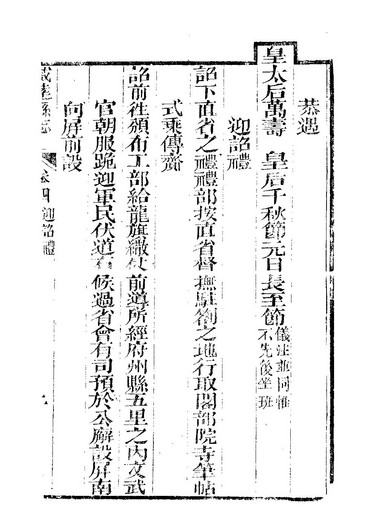 恭遇
皇太后萬壽　皇后千秋節元日長至節儀注並同惟
不先後坐班
迎詔禮
詔下直省之禮禮部按直省督撫駐劄之地行取閣部院寺筆帖
式乘傳齎
詔前往頒布工部給龍旗繖仗前導所經府州縣五里之內文武
官朝服跪迎軍民伏道右候過省會有司預於公廨設屏南
向屏前設
卷四 迎詔禮